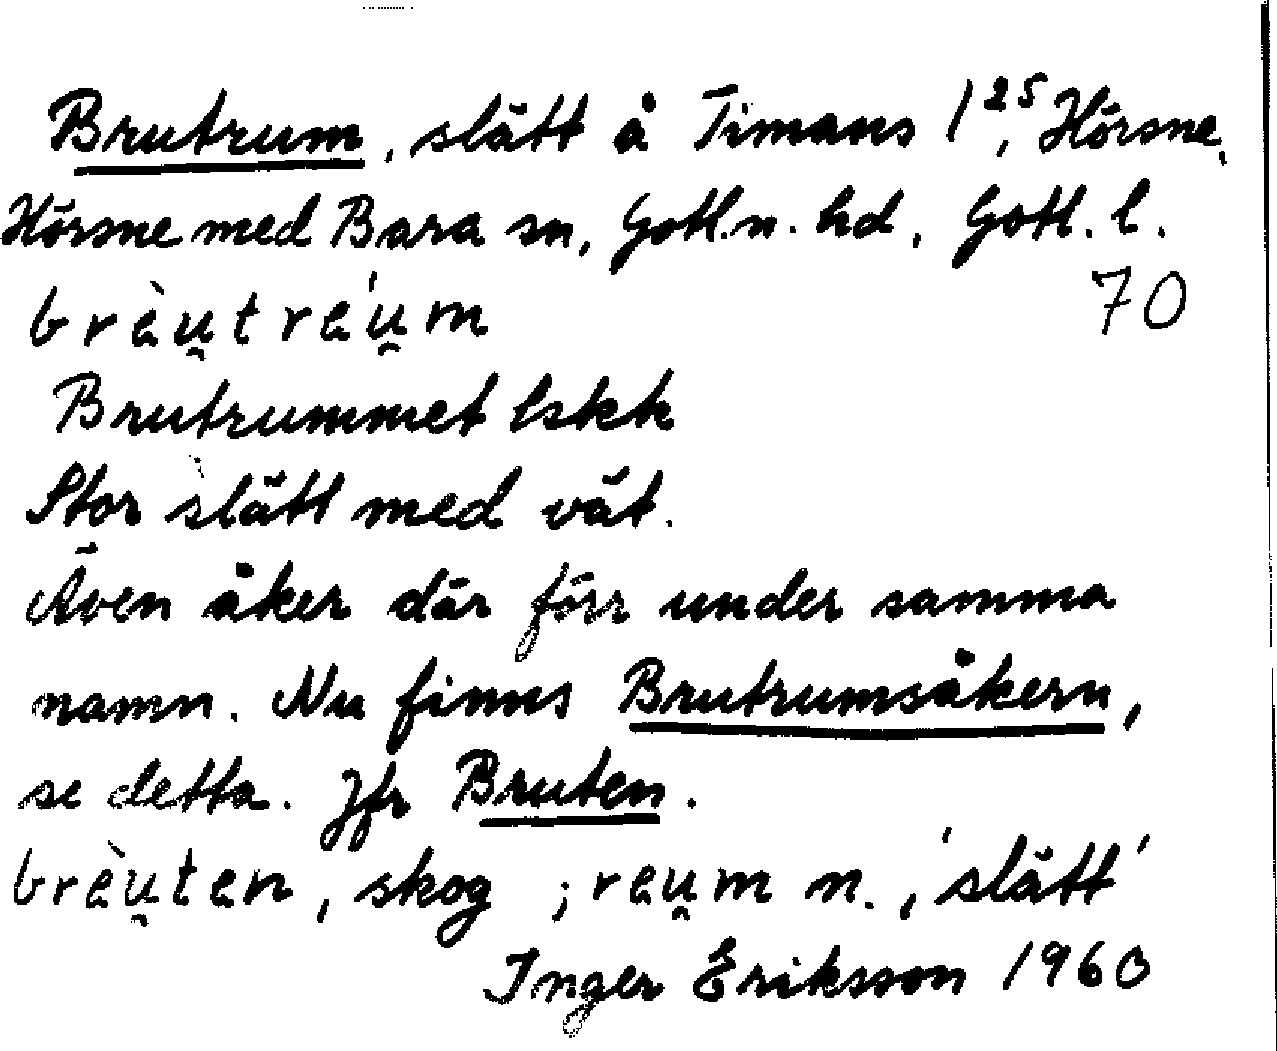 Brutrum, slätt å Timans 1²⁵, Hörsne,
Hörsne med Bara sn, Gotl.n. hd, Gotl. l.
brèu̯tréu̯m 70
Brutrummet lskk
Stor slätt med vät.
Även åker där förr under samma
namn. Nu finns Brutrumsåkern,
se detta. Jfr Bruten.
brèu̯ten, skog ; reu̯m n., 'slätt'
Inger Eriksson 1960